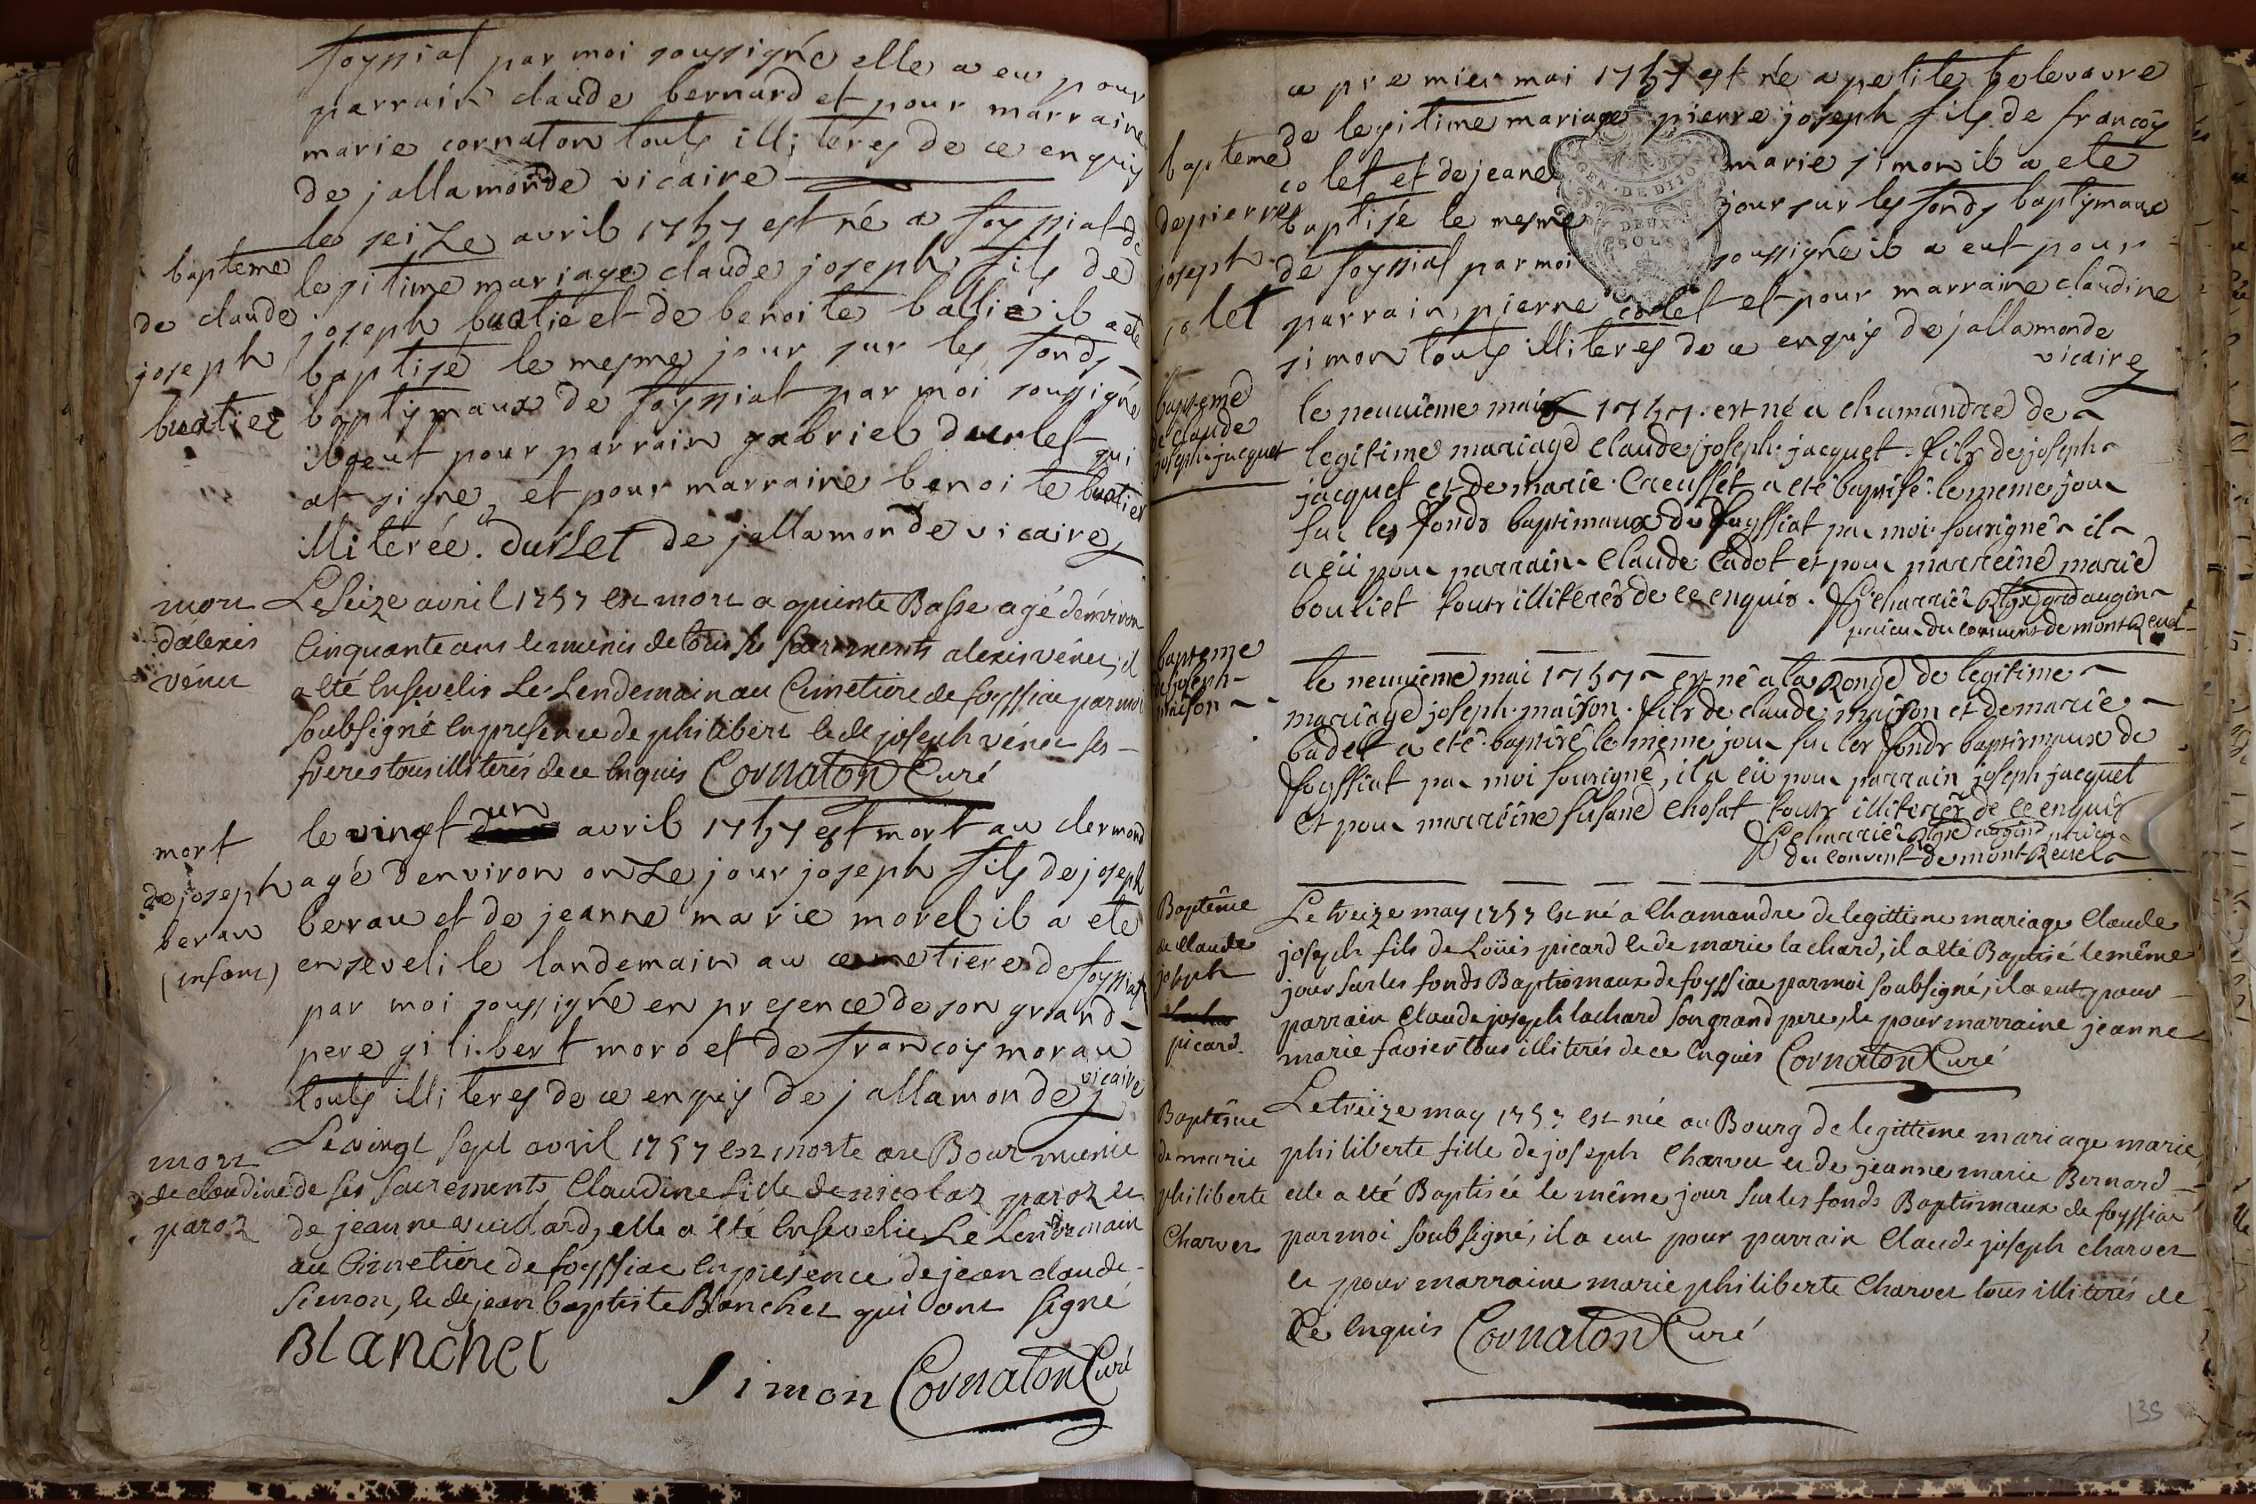 foyssiat par moi soussigné elle a eu pour
parrain claude bernard et pour marraine
marie cornaton touts illiteres de ce enquis
de jallamonde vicaire
bapteme
de claude
joseph
buatier
le seize avril 1757 est né a foyssiat de
legitime mariage claude joseph fils de
joseph buatié et de benoite ballié il a eté
baptisé le mesme jour sur les fonds
baptismaux de foyssiat par moi soussigné
il a eut pour parrain gabriel durlet qui
at signe, et pour marraine benoite buatier
illiterée. durlet de jallamonde vicaire
mort
d'alexis
vénet
Le Seize avril 1757 est mort a quinte Basse agé d'environ
Cinquante ans lemunis de tous ses sacrements alexis vénet, il
a été Ensevelis Le Lendemain au Cimetiere de foyssiat par moi
soubsigné En presence de philibert et de joseph vénet ses
freres tous illiterés de ce Enquis Cornaton Curé
mort
de joseph
berau
(enfant)
le vingt un avril 1757 est mort au clermond
agé d'environ onze jour joseph fils de joseph
berau et de jeanne marie morel il a eté
enseveli le landemain au cemetiere de foyssiat
par moi soussigné en presence de son grand
pere gilibert moro et de francois morau
touts illiteres de ce enquis de jallamonde vicaire
mort
de claudine
paroz
Le vingt sept avril 1757 est morte au Bour munie
de ses sacrements Claudine fille de nicolaz paroz et
de jeanne avuillard, elle a été Ensevelie Le Lendemain
au Cimetiere de foyssiat En presence de jean claude
Simon, et de jean baptiste Blanchet qui ont signé
Blanchet
Simon Cornaton Curé
bapteme
de pierre
joseph
colet
ce premier mai 1757 est né a petite belevavre
de legitime mariage pierre joseph fils de francois
colet et de jeane marie simon il a eté
baptisé le mesme jour sur les fonds baptismaux
de foyssiat par moi soussigné il a eut pour
parrain pierre colet et pour marraine claudine
simon touts illiteres de ce enquis de jallamonde
vicaire
GEN. DE DIJON
DEUX
SOLS
bapteme
de claude
joseph jacquet
le neuuieme mai 1757 est né a chamandre de
legitime mariage claude joseph jacquet fils de joseph
jacquet et de marie Creusset a eté baptisé le meme jour
sur les fonds baptimaux de foyssiat par moi sousigné il
a eü pour parrain Claude Cadot et pour marreine marie
bouliet touts illiterés de ce enquis.
prieur du couvent de montReuel
bapteme
de joseph
maison
le neuuieme mai 1757 est né a la Ronge de legitime
mariage joseph maison fils de claude maison et de marie
badet a eté baptisé le meme jour sur les fonds baptismaux de
foyssiat par moi sousigné, il a eü pour parrain joseph jacquet
et pour marreine susane chosat touts illiterés de ce enquis
prieur
du couvent de montReuel
Baptême
de Claude
joseph
picard
Le treize may 1757 Est né a Chamandre de legittime mariage Claude
joseph fils de Loüis picard et de marie lachard, il a été Baptisé le même
jour sur les fonds Baptismaux de foyssiat par moi soubsigné, il a eut pour
parrain Claude joseph lachard son grand pere, et pour marraine jeanne
marie favier tous illiterés de ce Enquis Cornaton Curé
Baptême
de marie
philiberte
Charvet
Le treize may 1757 est née au Bourg de legittime mariage marie
philiberte fille de joseph Charvet et de jeanne marie Bernard
elle a été Baptisée le même jour sur les fonds Baptismaux de foyssiat
par moi soubsigné, il a eut pour parrain Claude joseph charvet
et pour marraine marie philiberte Charvet tous illiterés de
Ce Enquis Cornaton Curé
135